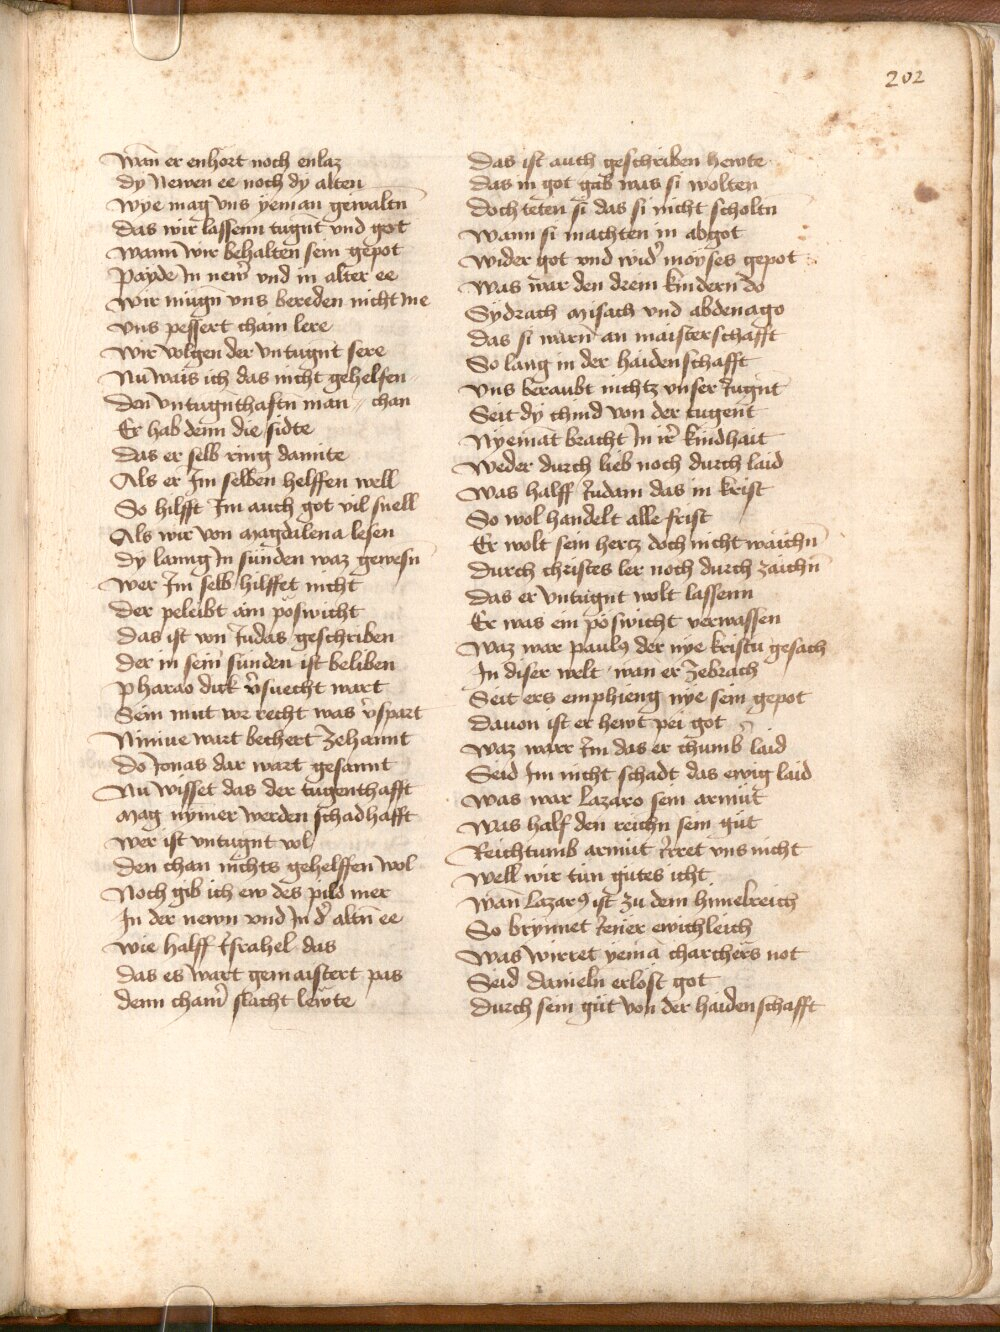 202
Wan̄ er enhort noch enlaz
dy Newen ee noch dy alten
Wye mag vns yeman gewaltn̄
das wir lassenn tugn̄t vnd got
Wann wir behalten sein gepot
Payde In new̄ vnd in alter ee
Wir mugn̄ vns bereden nicht me
vns pessert chain lere
Wir volgen der vntugn̄t sere
Nu wais ich das nicht gehelfen
den vntugn̄thaftn̄ man // chan
Er hab denn die sidte
das er selb ring damite
Als er Im selben helffen well
So hilfft Im auch got vil snell
Als wir von Magdalena lesen
dy lanng In sunden waz gewesn̄
wer Im selb hilffet nicht
der peleibt ain poswicht
das ist von Judas geschriben
der in sein sunden ist beliben
pharao dick v̄suecht wart
Sein mut vor recht was v̄spart
Niniue wart bechert zehannt
do Jonas dar wart gesannt
Nu wisset das der tugenthafft
Mag nymer werden schadhafft
wer ist vntugn̄t vol
den chan nichts gehelffen wol
Noch gib ich ew des pild mer
In der newn vnd In d̄ altn̄ ee
wie halff Israhel das
das es wart gemaistert pas
denn cham̄ slacht lewte
das ist auch geschriben hewte
das in got gab was si wolten
doch teten si das si nicht scholtn
Wann si machten in abgot
wider got vnd wid̄ moyses gepot
Was war den drein kindern do
Sydrach Misach vnd abdenago
das si warn̄ an maisterschafft
So lang in der haidenschafft
vns beraubt nichtz vnser Tugn̄t
Seit dy chind von der tugent
Nyemāt bracht In ir̄ kindhait
Weder durch lieb noch durch laid
Was halff Judam das in krist
So wol handelt alle frist
Er wolt sein hertz doch nicht waichn̄
durch christes ler noch durch zaichn̄
das er vntugnt wolt lassenn
Er was ein poswicht verwassen
Waz war paulꝯ der nye kristu gesach
In diser welt wan er zebrach
Seit ers emphieng nye sein gepot
dauon ist er hewt pei got
Waz warr Im das er chumb̄ laid
Seid Im nicht schadt das ewig laid
Was war Lazaro sein armut
Was half den reichn sein gut
Reichtumb armut Irret vns nicht
Well wir tun gutes icht
Wan̄ Lazarꝯ ist zu dem himelreich
So brynnet Jener ewichleich
Was wirret yemā charchers not
Seid danieln erlost got
durch sein gut von der haidenschafft